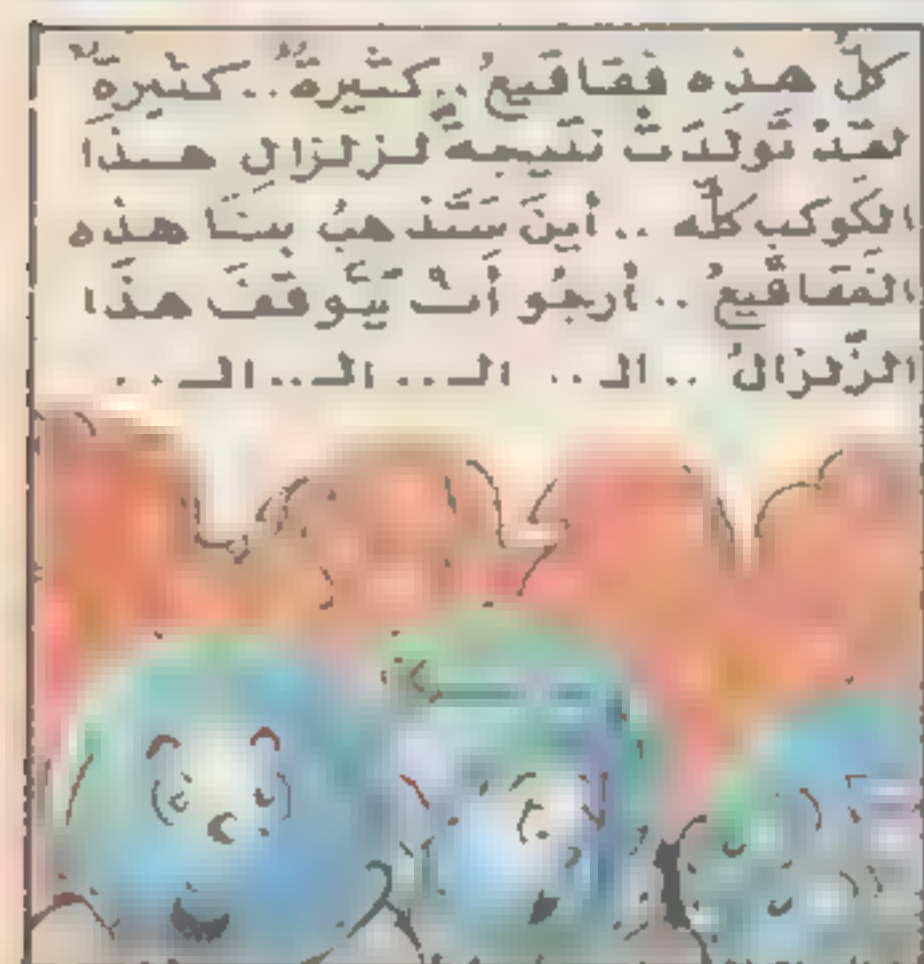 كلُّ هذه فقاقيعُ .. كثيرةٌ .. كثيرةٌ
لقدْ تَولَّدَتْ نتيجةً لزلزال هذا
الكَوكب كلّه .. أينَ سَتذهبُ بنَا هذه
الفَقاقيعُ .. أرجُو أنْ يَتوقفَ هذَا
الزّلزالُ .. الـ .. الـ .. الـ .. الـ ..